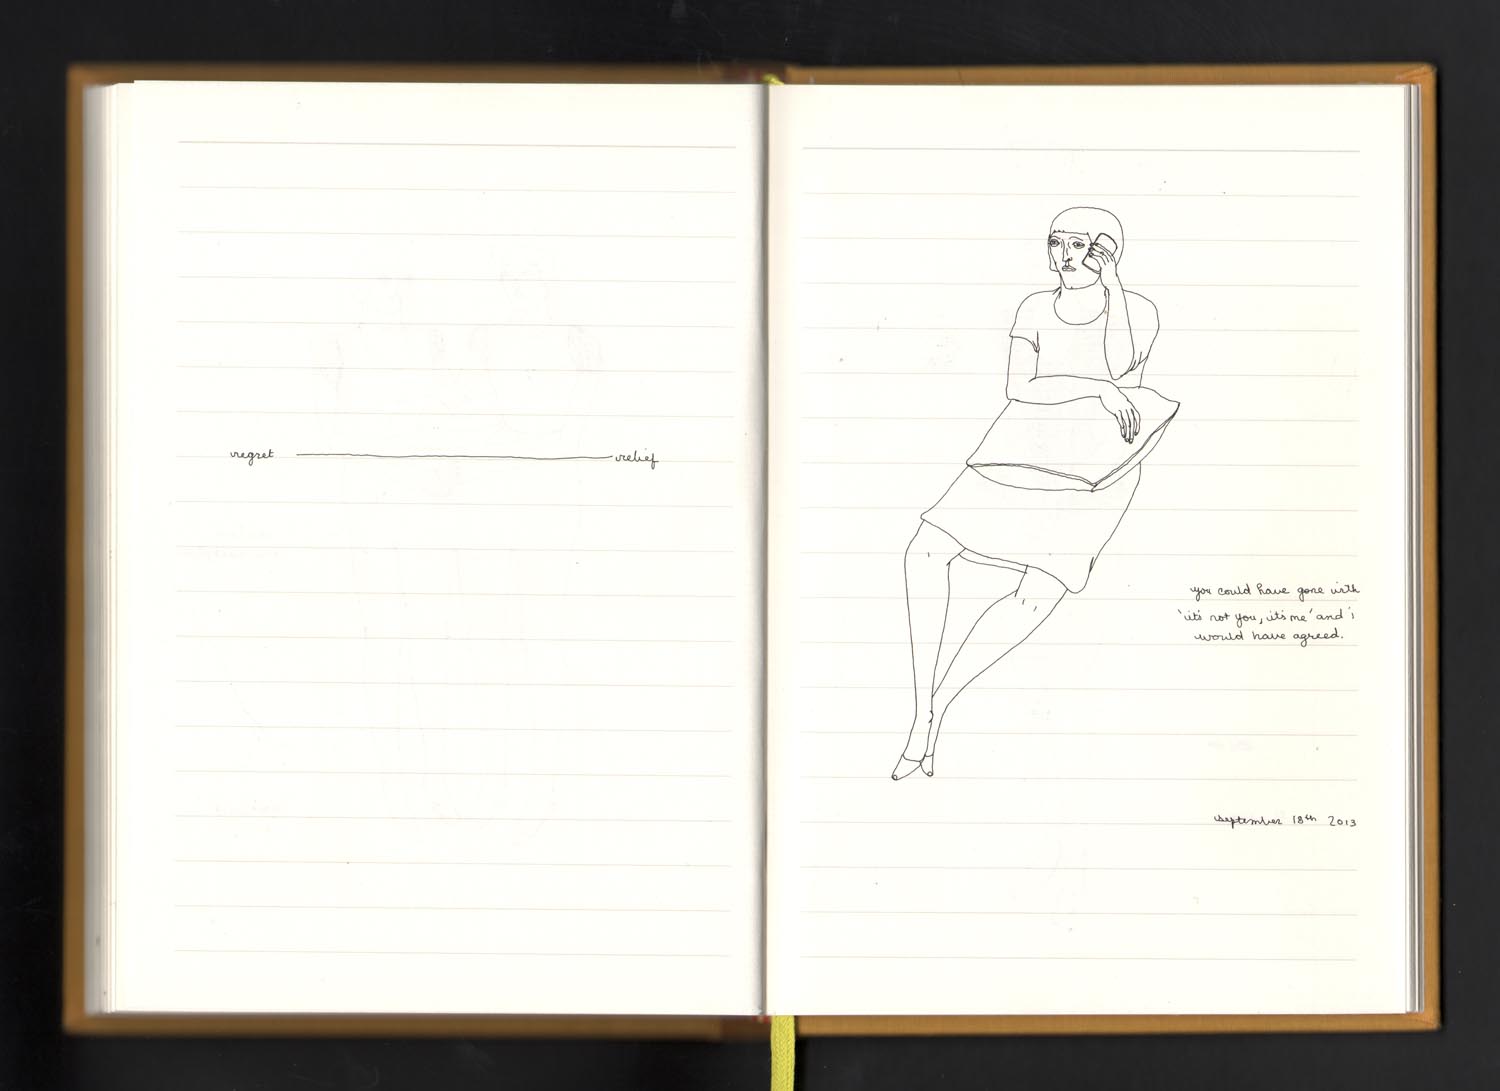 regret relief
you could have gone with
'it's not you, it's me' and i
would have agreed.
september 18th 2013